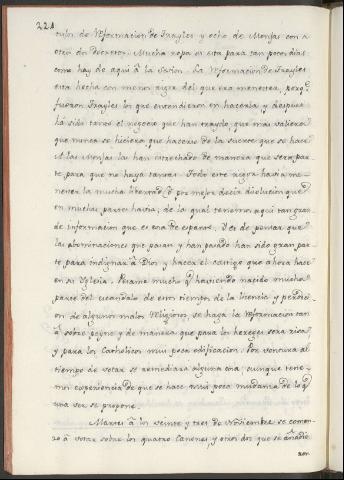 221
tulos de Reformacion de Frayles y ocho de Monjas con
otros dos decretos. Mucha ropa es esta para tan pocos dias
como hay de aqui â la sesion. La Reformacion de Frayles
esta hecha con menos rigor del que era menester, porq.
fueron Frayles los que entendieron en hacerla, y despues
há sido tanto el negocio que han traydo, que mas valiera
que nunca se hiciera que hacerse de la suerte que se hace
A las Monjas las han estrechado de manera que será par-
te para que no haya tantas. Todo este rigor havia me-
nester la mucha libertad, ó por mejor decir disolucion que
en muchas partes havia, de la qual tenemos aqui tan gran-
de informacion que es cosa de espanto. Y es de pensar que
las abominaciones que pasan y han pasado han sido gran par-
te para indignar â Dios y hacer el castigo que ahora hace
en su Yglesia. Pesame mucho que haviendo nacido mucha
parte del escandalo de estos tiempos de la licencia y perdici-
on de algunos malos Religiosos, se haga la Reformacion tan
â sobre peyne y de manera que para los hereges sera risa
y para los Catholicos mui poca edificacion. Por ventura al
tiempo de votar se remediara alguna cosa, aunque tene-
mos experiencia de que se hace mui poca mudanza de lo q.
una vez se propone.
Martes â los veinte y tres de Noviembre se comen-
zó â votar sobre los quatro Canones, y otros dos que se añadie-
ron